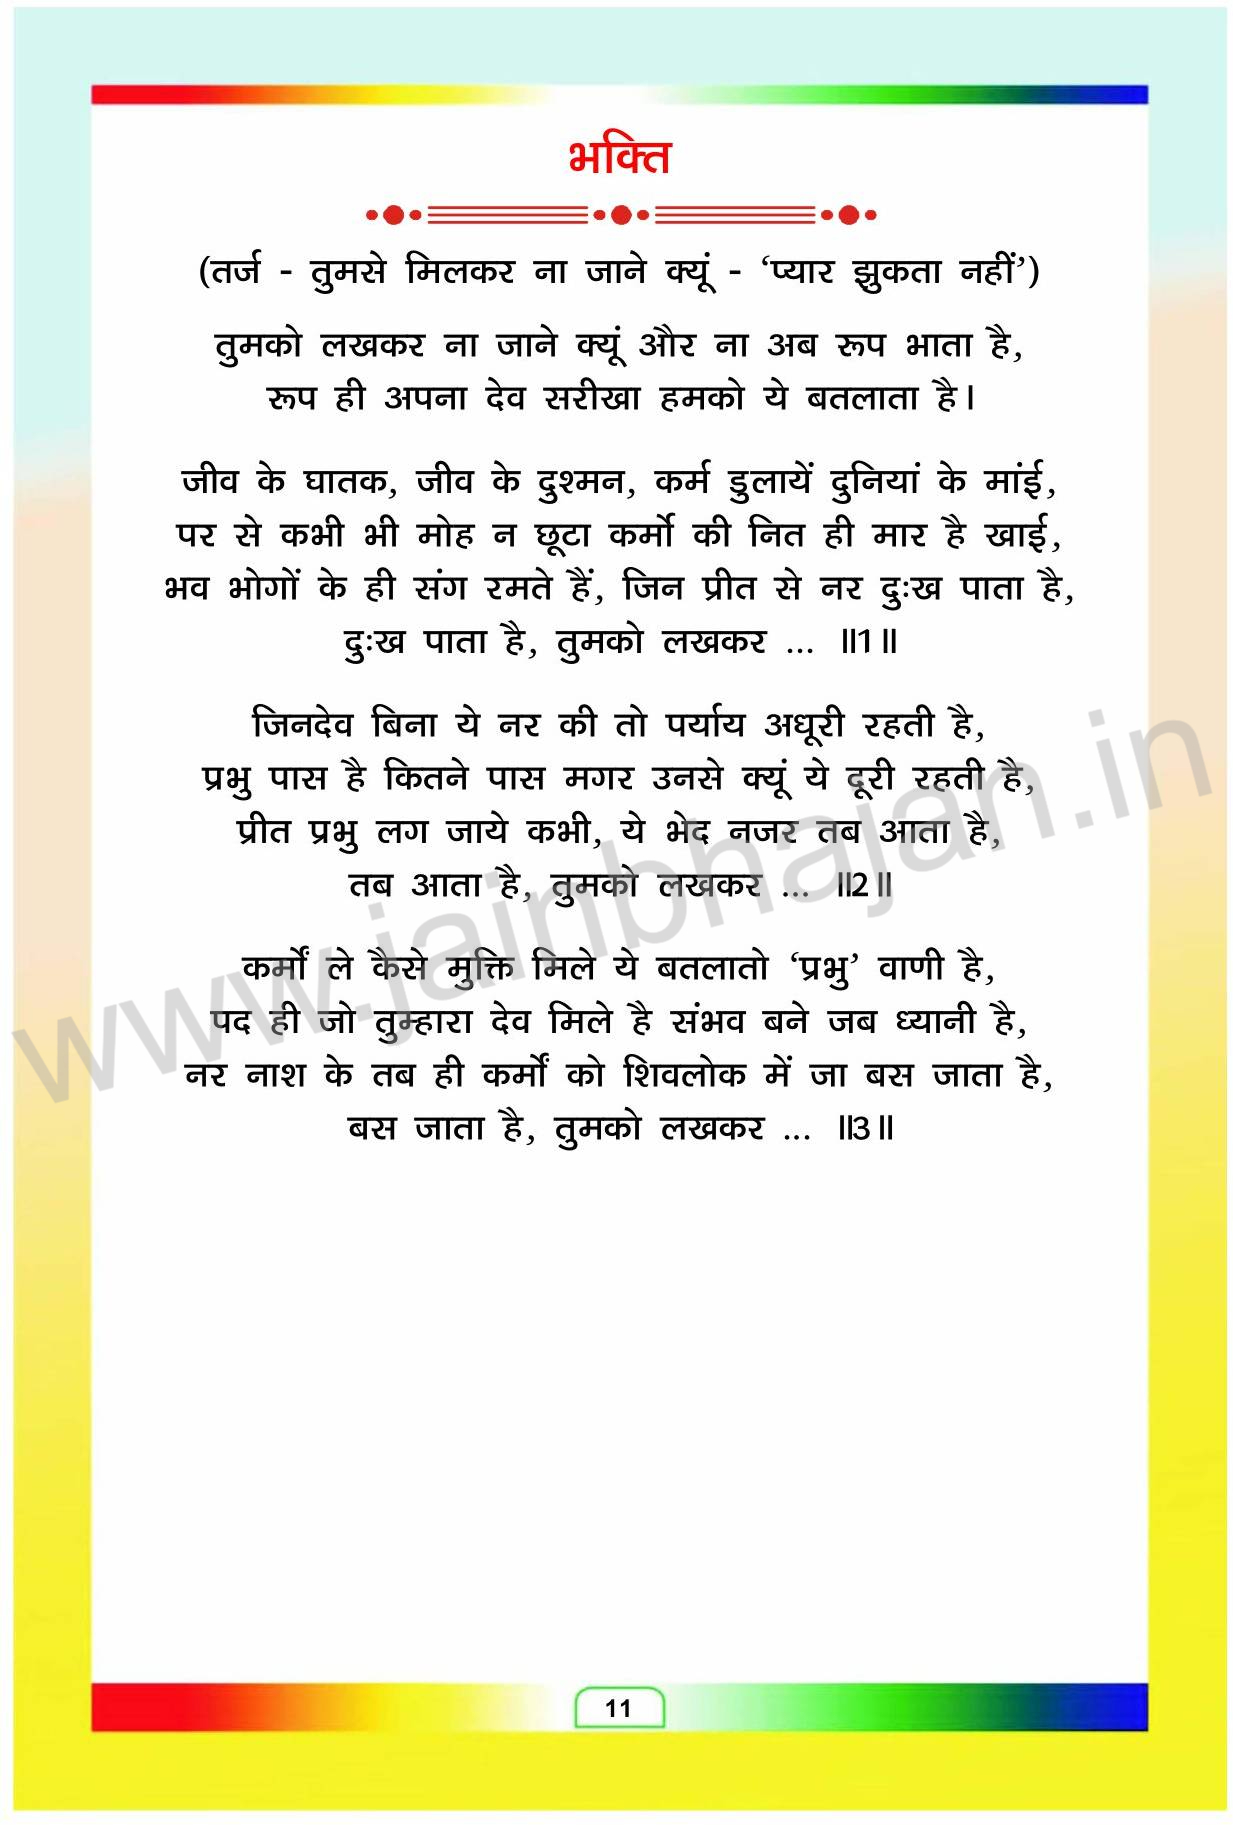 भक्ति
(तर्ज - तुमसे मिलकर ना जाने क्यूं - ‘प्यार झुकता नहीं’)
तुमको लखकर ना जाने क्यूं और ना अब रूप भाता है,
रूप ही अपना देव सरीखा हमको ये बतलाता है।
जीव के घातक, जीव के दुश्मन, कर्म डुलायें दुनियां के मांई,
पर से कभी भी मोह न छूटा कर्मो की नित ही मार है खाई,
भव भोगों के ही संग रमते हैं, जिन प्रीत से नर दुःख पाता है,
दुःख पाता है, तुमको लखकर ... ॥1॥
जिनदेव बिना ये नर की तो पर्याय अधूरी रहती है,
प्रभु पास है कितने पास मगर उनसे क्यूं ये दूरी रहती है,
प्रीत प्रभु लग जाये कभी, ये भेद नजर तब आता है,
तब आता है, तुमको लखकर ... ॥2॥
कर्मों ले कैसे मुक्ति मिले ये बतलातो ‘प्रभु’ वाणी है,
पद ही जो तुम्हारा देव मिले है संभव बने जब ध्यानी है,
नर नाश के तब ही कर्मों को शिवलोक में जा बस जाता है,
बस जाता है, तुमको लखकर ... ॥3॥
www.jainbhajan.in
11